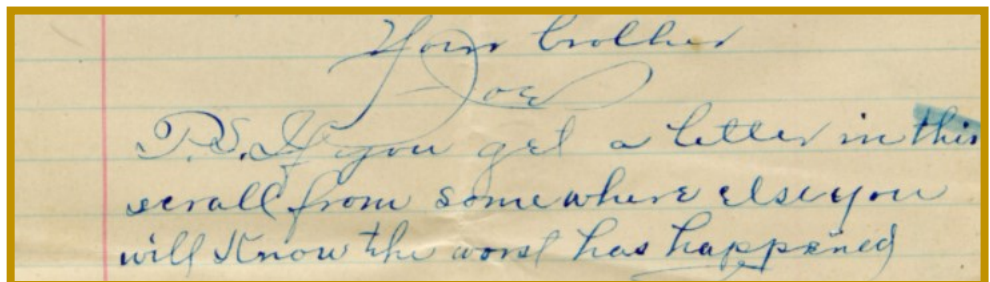 Your brother
Joe
P.S. If you get a letter in this
scrall from somewhere else you
will Know the worst has happened